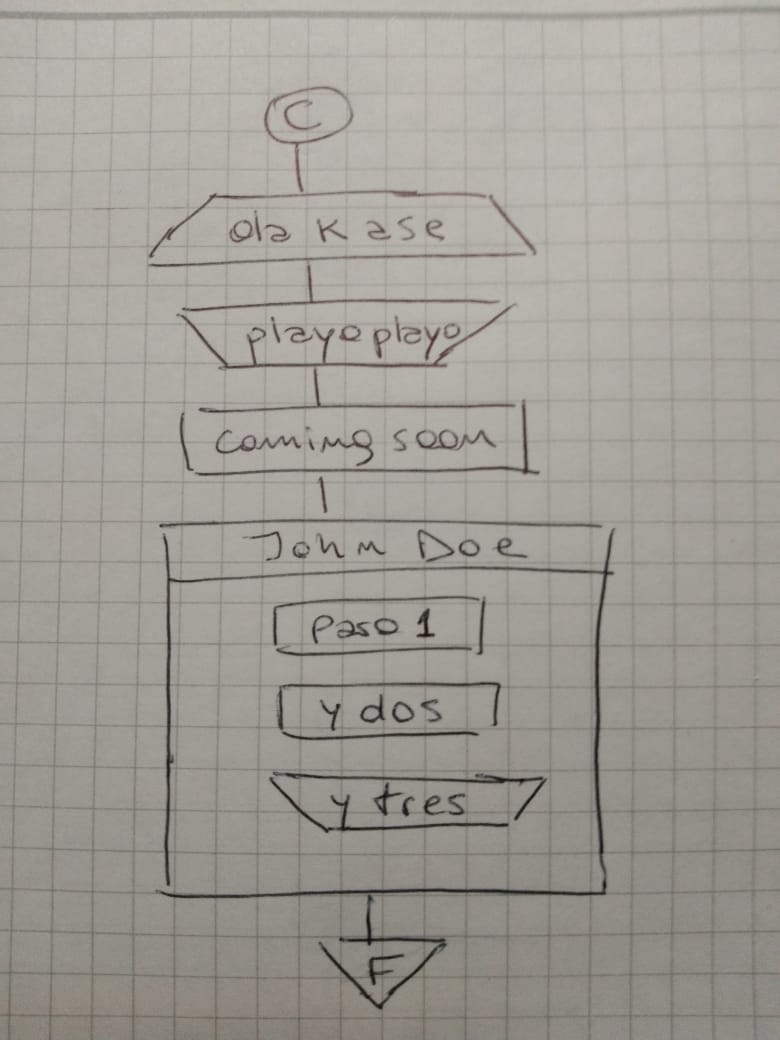 C
ola k ase
playo playo
coming soon
John Doe
paso 1
y dos
y tres
F